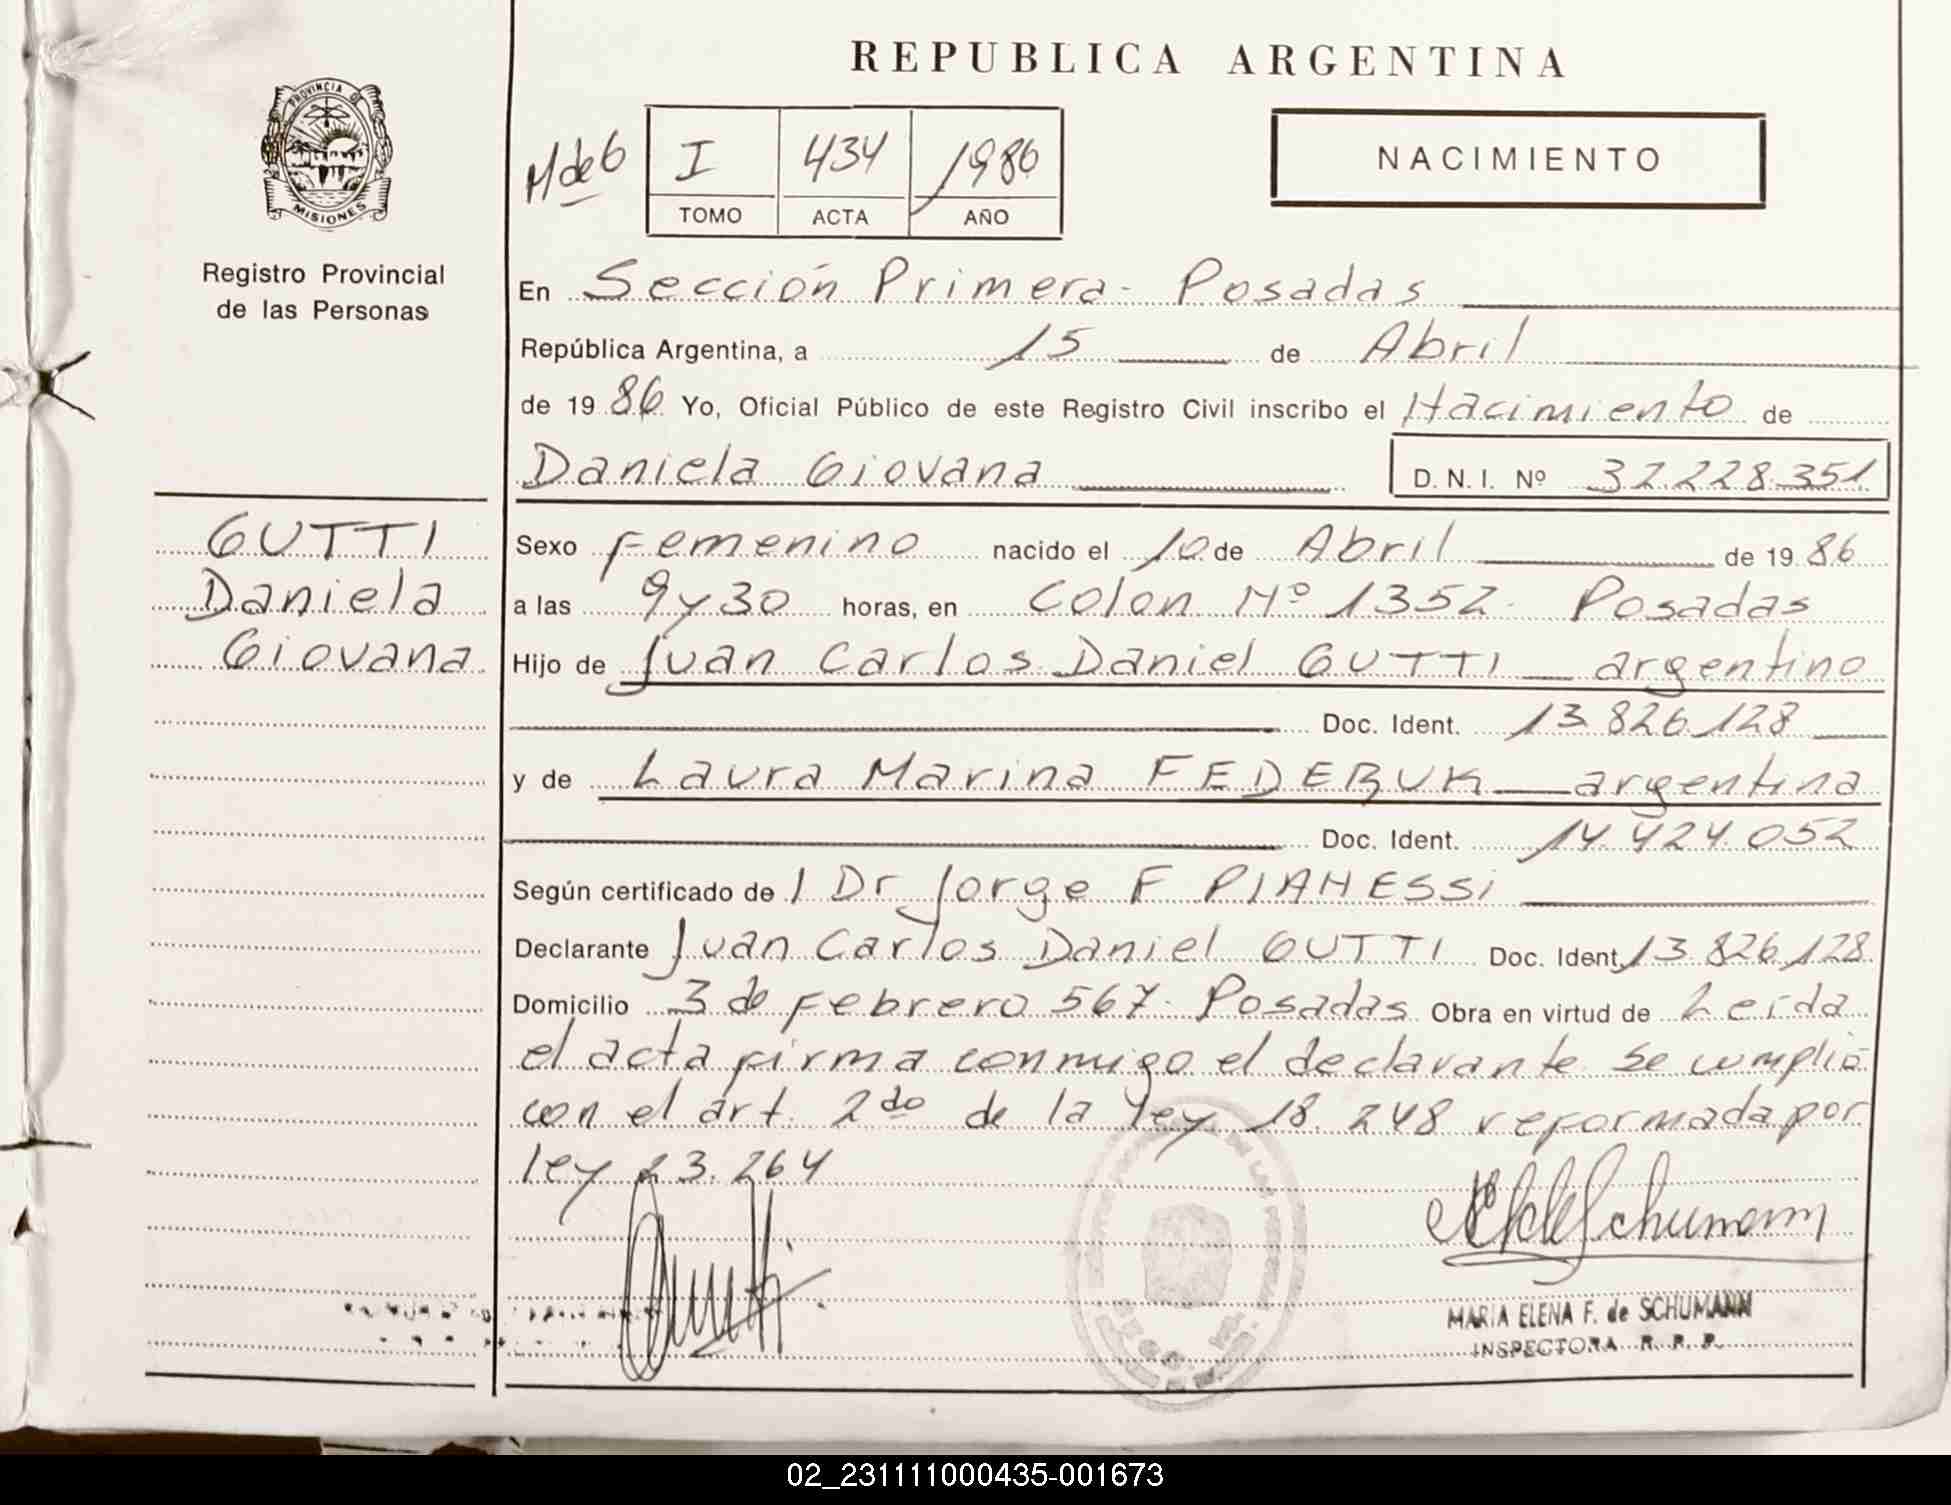 REPUBLICA ARGENTINA
PROVINCIA DE
MISIONES
Registro Provincial
de las Personas
M de 6
I 434 1986
TOMO ACTA AÑO
NACIMIENTO
En Sección Primera - Posadas
República Argentina, a 15 de Abril
de 1986 Yo, Oficial Público de este Registro Civil inscribo el Nacimiento de
Daniela Giovana D. N. I. Nº 32.228.351
GUTTI
Daniela
Giovana
Sexo Femenino nacido el 10 de Abril de 1986
a las 9 y 30 horas, en Colon Nº 1352 - Posadas
Hijo de Juan Carlos Daniel GUTTI argentino
Doc. Ident. 13.826.128
y de Laura Marina FEDERUK argentina
Doc. Ident. 14.424.052
Según certificado de l Dr Jorge F PIANESSi
Declarante Juan Carlos Daniel GUTTI Doc. Ident. 13.826.128
Domicilio 3 de Febrero 567 - Posadas Obra en virtud de Leida
el acta firma conmigo el declarante se cumplió
con el art. 2do de la ley 18.248 reformada por
ley 23.264
MARIA ELENA F. de SCHUMANN
INSPECTORA R. P. P.
02_231111000435-001673